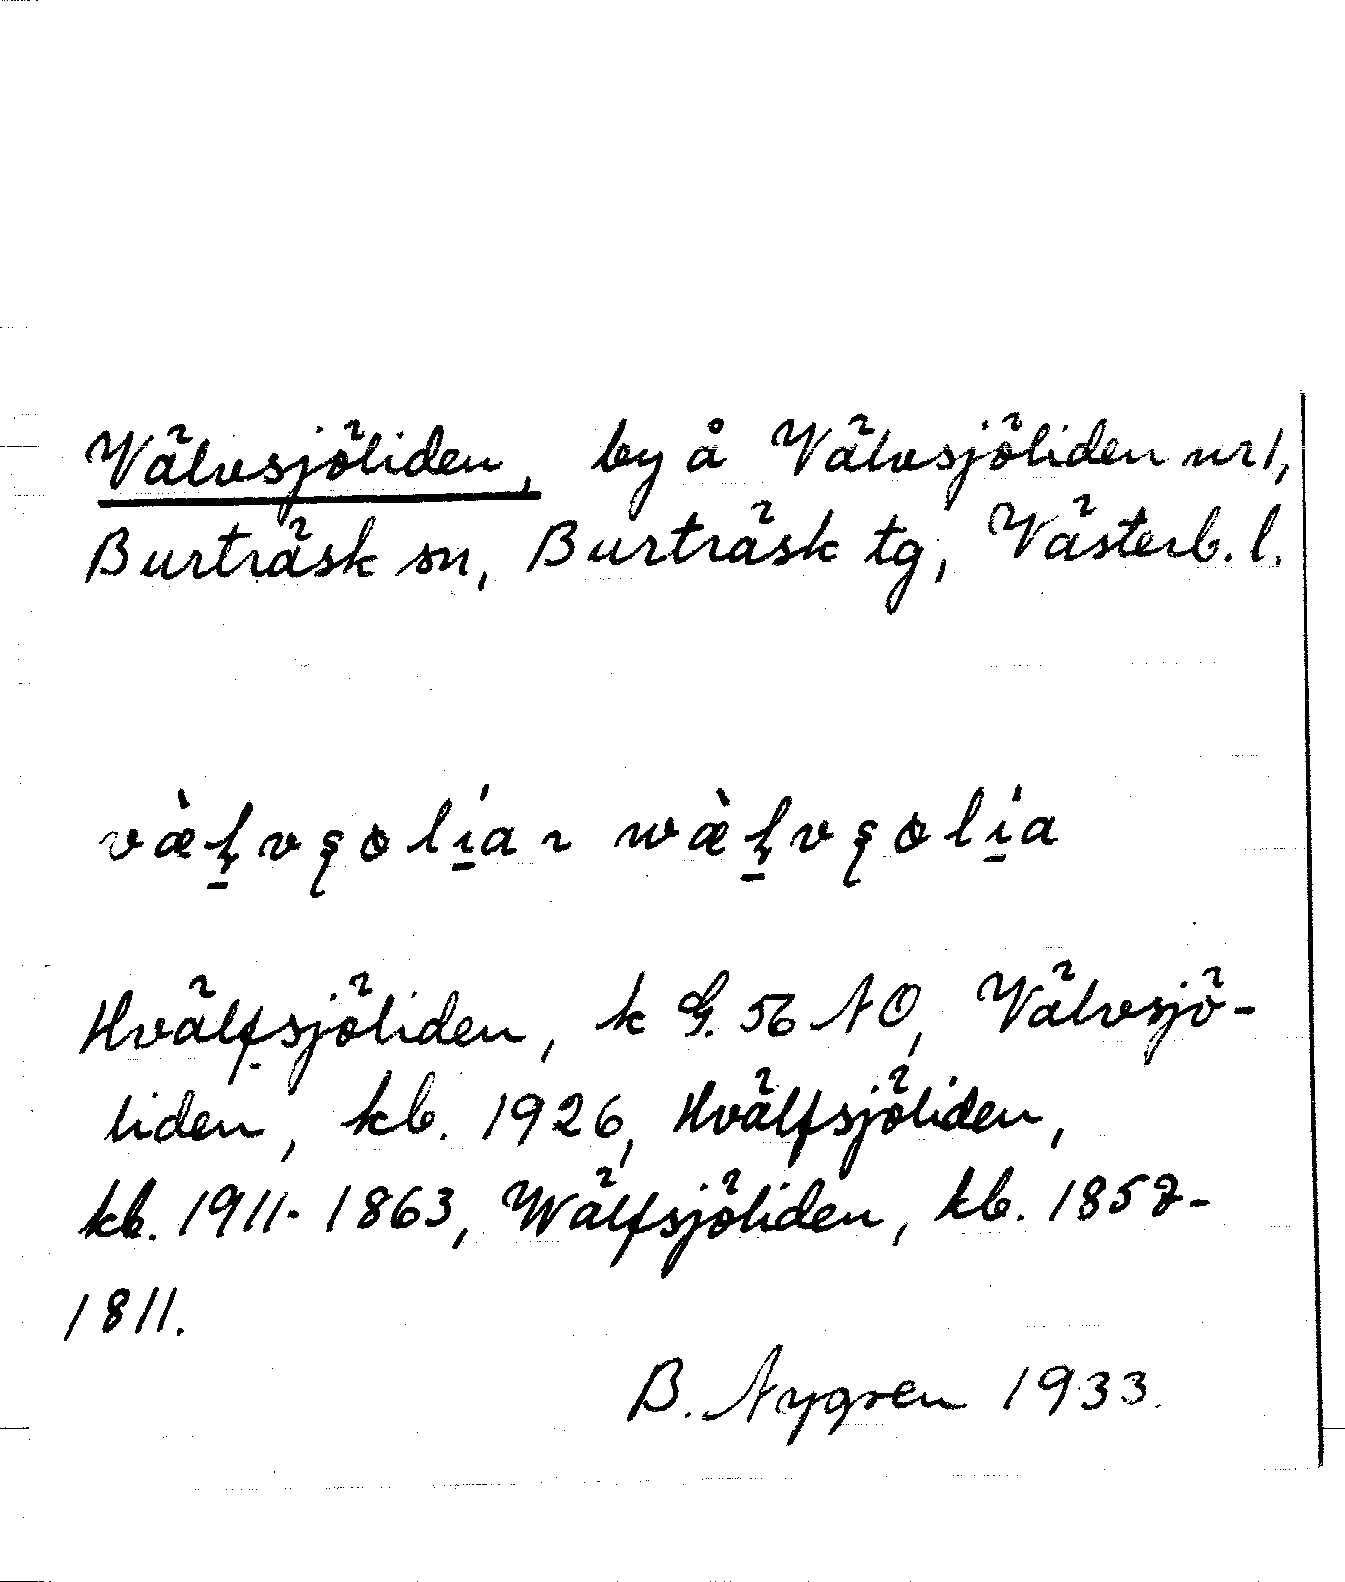 Välvsjöliden, by å Välvsjöliden nr 1,
Burträsk sn, Burträsk tg, Västerb. l.
Hvälfsjöliden, k G. 56 NO, Välvsjö-
liden, kb. 1926, Hvälfsjöliden,
kb. 1911-1863, Wälfsjöliden, kb. 1857-
1811.
B. Nygren 1933.